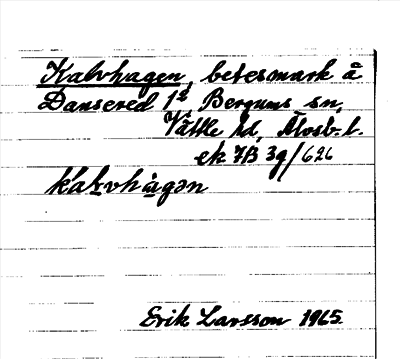 Kalvhagen, betesmark å
Dansered 1⁵, Bergums sn,
Vättle hd, Älvsb. l.
ek 7B 3g/626
Erik Larsson 1965.